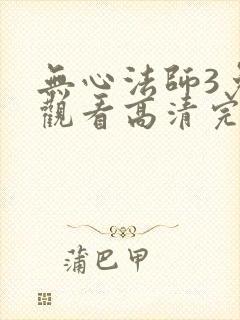 無心法師3免
觀看高清完
蒲巴甲